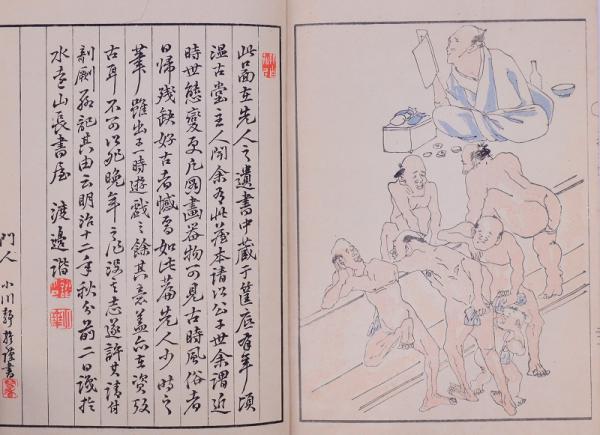 此啚在先人之遺書中蔵于筐底有年頃
温古堂主人聞余有此蔵本請以公于世余謂近
時世態變更凡圖畫器物可見古時風俗者
日帰残缺好古者憾焉如此篇先人少時之
筆雖出于一時遊戯之餘其意蓋亦在資攷
古耳不可以非晩年之作没之志遂許其請付
剞劂記其由云明治十二年秋分前二日識於
水山長書屋 渡邊諧
門人 小川静謹書